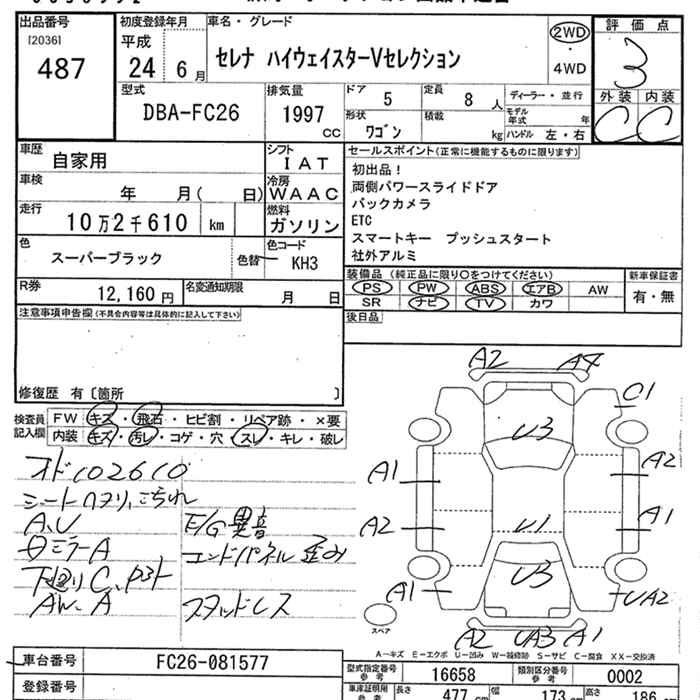 出品番号
[2036]
487
初度登録年月
平成
24 6月
車名・グレード
セレナ ハイウェイスターVセレクション
2WD
・
4WD
評価点
3
外装 内装
C C
型式
DBA-FC26
排気量
1997
CC
ドア
5
定員
8 人
ディーラー・並行
形状
ワゴン
積載
kg
モデル年式 年
ハンドル 左・右
車歴
自家用
シフト
IAT
車検
年 月( 日)
冷房
WAAC
走行
10万2千610 km
燃料
ガソリン
色
スーパーブラック
色替
色コード
KH3
R券
12,160円
名変通知期限
月 日
セールスポイント(正常に機能するものに限ります)
初出品!
両側パワースライドドア
バックカメラ
ETC
スマートキー プッシュスタート
社外アルミ
装備品 (純正品に限り○をつけてください)
新車保証書
PS PW ABS エアB AW
SR ナビ TV カワ
有・無
後日品
注意事項申告欄(不具合内容等は具体的に記入して下さい)
修復歴 有〔箇所 〕
検査員記入欄
FW キズ・飛石・ヒビ割・リペア跡・×要
内装 キズ・汚レ・コゲ・穴・スレ・キレ・破レ
オド102610
シートヘタリ、こすれ
A、U
E/G異音
ミラーA
エンドパネル歪み
下廻りC、
AW、A
スタッドレス
A2 A4
C1
U3
A1
A2
A2
U1
A1
A1
U3
UA2
スペア
A2 UA3 A1
A-キズ E-エクボ U-凹み W-補修跡 S-サビ C-腐食 XX-交換済
車台番号
FC26-081577
登録番号
型式指定番号
参考
16658
類別区分番号
参考
0002
車庫証明用
参考
長さ
477
幅
173
高さ
186